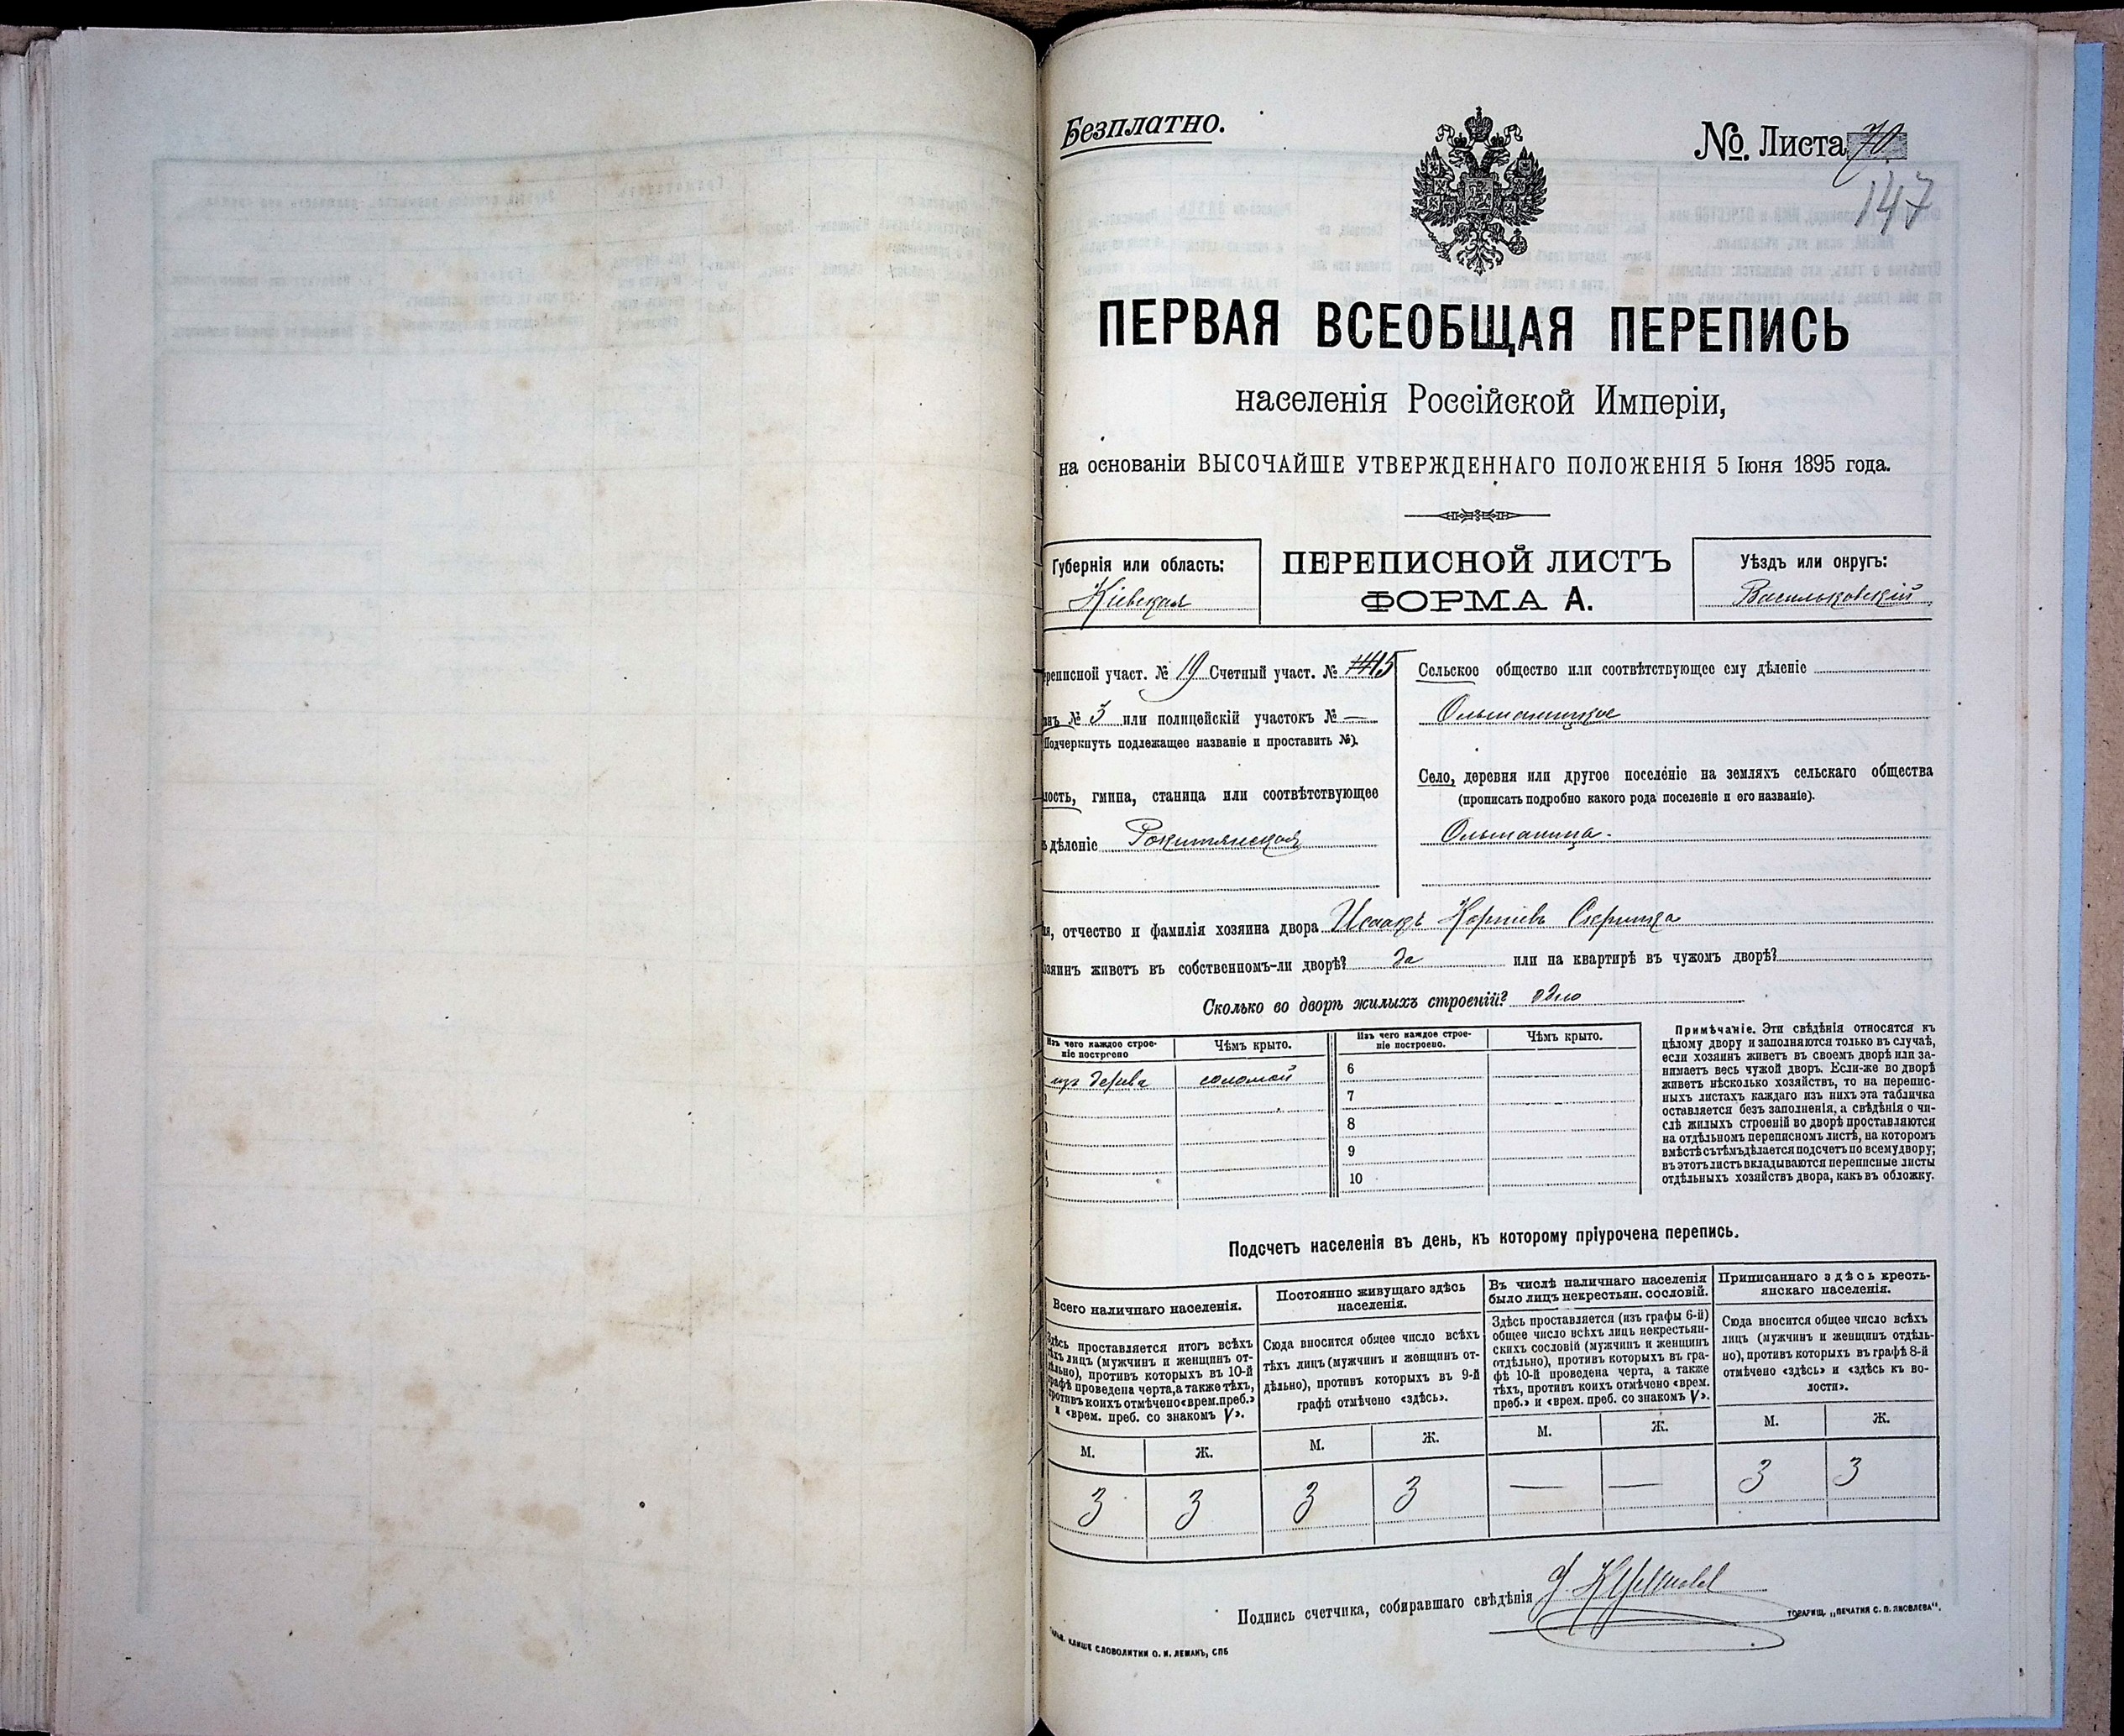 Безплатно.
№. Листа 70
147
ПЕРВАЯ ВСЕОБЩАЯ ПЕРЕПИСЬ
населенія Россійской Имперіи,
на основаніи ВЫСОЧАЙШЕ УТВЕРЖДЕННАГО ПОЛОЖЕНІЯ 5 Іюня 1895 года.
Губернія или область:
Кіевская
ПЕРЕПИСНОЙ ЛИСТЪ
ФОРМА А.
Уѣздъ или округъ:
Васильковскій
реписной участ. № 19 Счетный участ. № 15
анъ № 3 или полицейскій участокъ № —
(Подчеркнуть подлежащее названіе и проставить №).
лость, гмина, станица или соотвѣтствующее
ъ дѣленіе Рокитянская
Сельское общество или соотвѣтствующее ему дѣленіе
Ольшаницкое
Село, деревня или другое поселеніе на земляхъ сельскаго общества
(прописать подробно какого рода поселеніе и его названіе).
Ольшаница.
мя, отчество и фамилія хозяина двора Исаакъ Корніевъ Скрипка
озяинъ живетъ въ собственномъ-ли дворѣ? да или на квартирѣ въ чужомъ дворѣ?
Сколько во дворѣ жилыхъ строеній? одно
Изъ чего каждое строе-
ніе построено
Чѣмъ крыто.
Изъ чего каждое строе-
ніе построено.
Чѣмъ крыто.
изъ дерева соломой
6
2
7
3
8
4
9
5
10
Примѣчаніе. Эти свѣдѣнія относятся къ
цѣлому двору и заполняются только въ случаѣ,
если хозяинъ живетъ въ своемъ дворѣ или за-
нимаетъ весь чужой дворъ. Если-же во дворѣ
живетъ нѣсколько хозяйствъ, то на перепис-
ныхъ листахъ каждаго изъ нихъ эта табличка
оставляется безъ заполненія, а свѣдѣнія о чи-
слѣ жилыхъ строеній во дворѣ проставляются
на отдѣльномъ переписномъ листѣ, на которомъ
вмѣстѣ съ тѣмъ дѣлается подсчетъ по всему двору;
въ этотъ листъ вкладываются переписные листы
отдѣльныхъ хозяйствъ двора, какъ въ обложку.
Подсчетъ населенія въ день, къ которому пріурочена перепись.
Всего наличнаго населенія.
Здѣсь проставляется итогъ всѣхъ
тѣхъ лицъ (мужчинъ и женщинъ от-
дѣльно), противъ которыхъ въ 10-й
графѣ проведена черта, а также тѣхъ,
противъ коихъ отмѣчено «врем. преб.»
и «врем. преб. со знакомъ V».
Постоянно живущаго здѣсь
населенія.
Сюда вносится общее число всѣхъ
тѣхъ лицъ (мужчинъ и женщинъ от-
дѣльно), противъ которыхъ въ 9-й
графѣ отмѣчено «здѣсь».
Въ числѣ наличнаго населенія
было лицъ некрестьян. сословій.
Здѣсь проставляется (изъ графы 6-й)
общее число всѣхъ лицъ некрестьян-
скихъ сословій (мужчинъ и женщинъ
отдѣльно), противъ которыхъ въ гра-
фѣ 10-й проведена черта, а также
тѣхъ, противъ коихъ отмѣчено «врем.
преб.» и «врем. преб. со знакомъ V».
Приписаннаго здѣсь кресть-
янскаго населенія.
Сюда вносится общее число всѣхъ
лицъ (мужчинъ и женщинъ отдѣль-
но), противъ которыхъ въ графѣ 8-й
отмѣчено «здѣсь» и «здѣсь къ во-
лости».
М. Ж. М. Ж. М. Ж. М. Ж.
3 3 3 3 — — 3 3
Подпись счетчика, собиравшаго свѣдѣнія
КЛИШЕ СЛОВОЛИТНИ О. И. ЛЕМАНЪ, СПБ
ТОВАРИЩ. „ПЕЧАТНЯ С. П. ЯКОВЛЕВА".